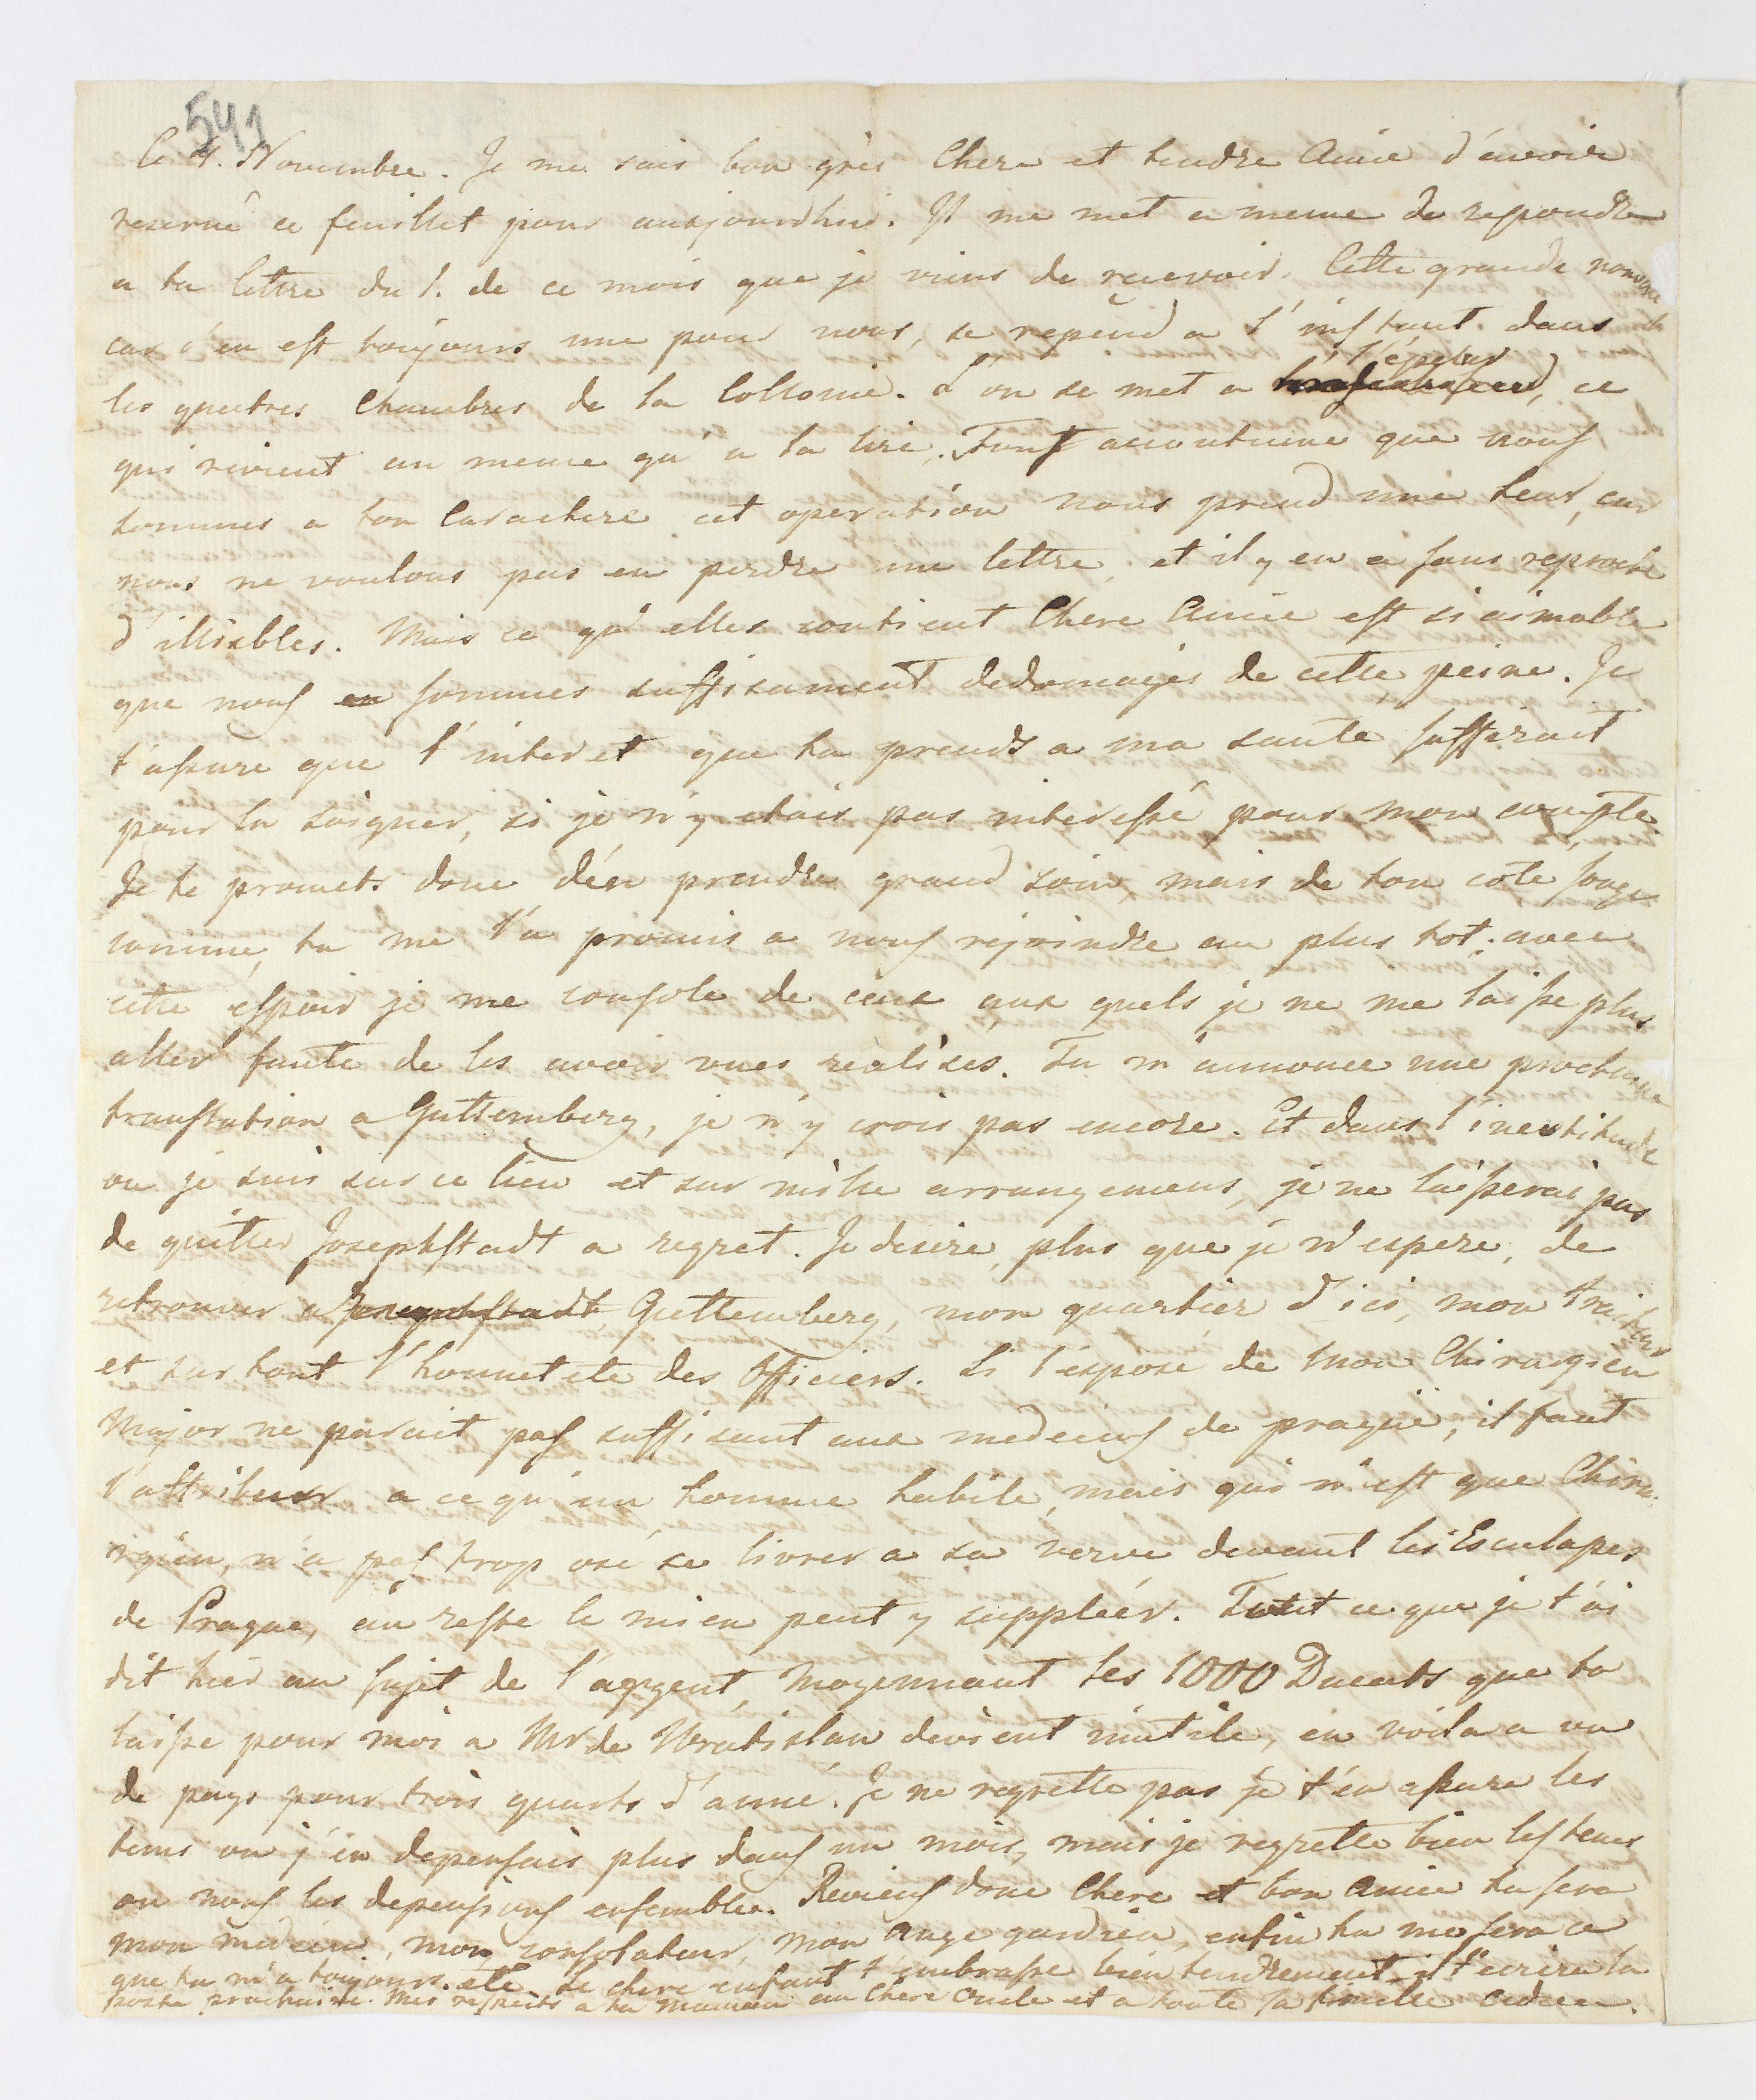 541
Ce 4. Novembre. Je me sais bon grès Chere et tendre Amie d'avoir
reservé ce feuillet pour aujourdhui. Il me met a meme de repondre
a ta lettre du 1. de ce mois que je viens de recevoir. Cette grande nouvelle
car c'en est toujours une pour nous, se repend a l'instant dans
les quatres Chambres de la Collonie. L'on se met a l'épeler, ce
qui revient au meme qu'a la lire. Tout accoutume que nous
sommes a ton Carachere cet operation nous prend une heur, car
nous ne voulons pas en perdre une lettre, et il y en a sans reproche
d'illisibles. Mais ce qu'elles contient Chere Amie est si aimable
que nous en sommes suffisament dedomagés de cette peine. Je
t'assure que l'interet que tu prends a ma santé suffirait
pour la soigner, si je n'y etais pas interessé pour mon compte.
Je te promets donc d'en prendre grand soin, mais de ton coté songe
comme, tu me l'a promis a nous rejoindre au plus tot; avec
cette espoir je me console de ceux aux quels je ne me laisse plus
aller faute de les avoir vues realisés. Tu m'annonce une prochaine
translation a Guttemberg, je n'y crois pas encore. Et dans l'incertitude
ou je suis sur ce lieu et sur nôtre arrangemens, je ne laisserai pas
de quitter Josephstadt a regret. Je desire, plus que je n'espere, de
retrouver a Josephstadt Guttemberg, mon quartier d'ici, mon traiteur
et sur tout l'honnetete des Officiers. Si l'exposé de mon Chirurgien
Major ne parait pas suffisant aux medecins de prague, il faut
l'attribuer a ce qu'un homme habile, mais qui n'est que Chiru-
rgien, n'a pas trop osé se livrer a sa verve devant les Esculapes
de Prague, au reste le mien peut y suppléér. Tout ce que je t'ai
dit hier au sujet de l'argent, moyennant les 1000 Ducats que tu
laisse pour moi a Mr de Wratislau devient inutile, en voila a vu
de pays pour trois quarts d'anné. Je ne regrette pas je t'en assure les
tems ou j'en depensais plus dans un mois, mais je regrette bien les tems
ou nous les depensions ensembles. Reviens donc Chere et bon Amie tu sera
mon médecin, mon consolateur, mon ange gardien, enfin tu me sera ce
que tu m'a toujours été. Le chere enfant t'embrasse bien tendrement, il t'ecrira la
poste prochaine. Mes respects a ta maman au Chere Oncle et a toute sa famille adieu.